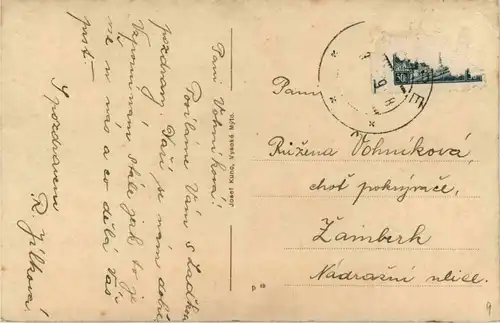 Paní Vohníková!
Posíláme Vám s Laďkou
pozdrav. Daří se nám dobře
Vzpomínám stále jak to je
ne u nás a co dělá Váš
prst.
S pozdravem
R. Jílková.
Josef Klofa, Vysoké Mýto.
Paní
Růžena Vohníková,
choť pokrývače,
Žamberk
Nádražní ulice.